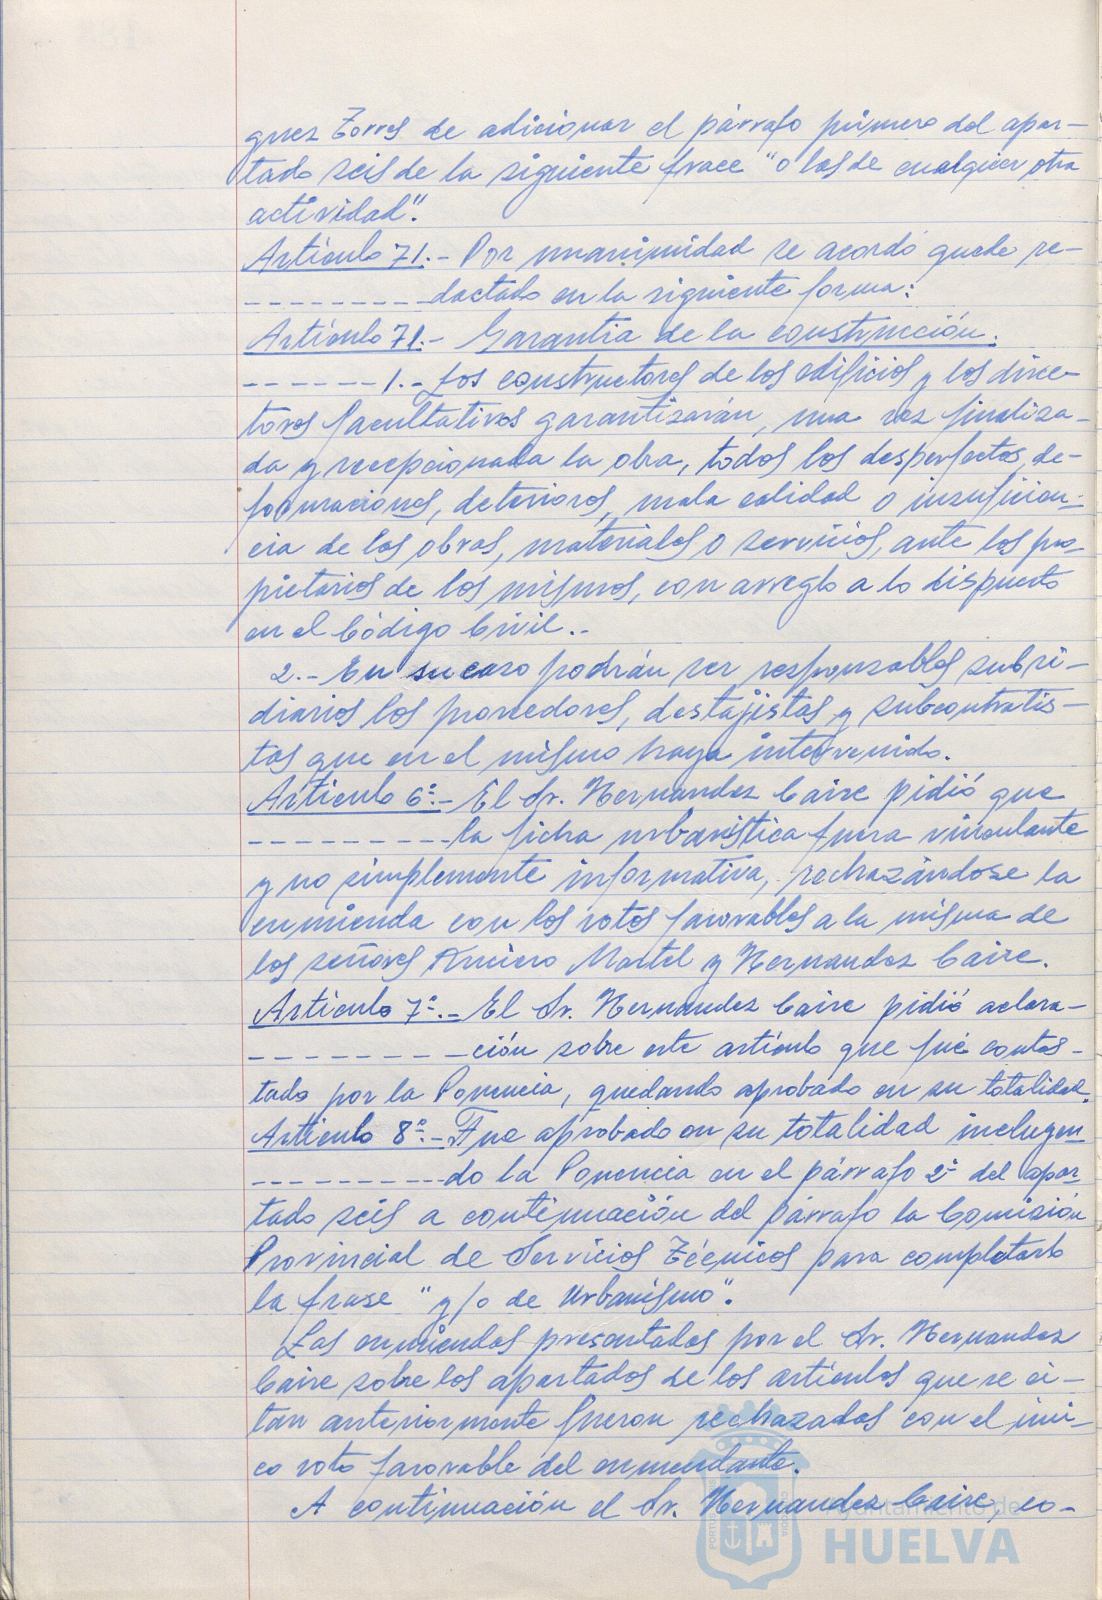 guez Torres de adicionar el párrafo primero del apar-
tado seis de la siguiente frace "o las de cualquier otra
actividad".
Artículo 71.- Por unanimidad se acordó quede re-
---------dactado en la siguiente forma:
Artículo 71.- Garantia de la construcción.
------1.- Los constructores de los edificios y los direc-
tores facultativos garantizarán, una vez finaliza-
da y recepcionada la obra, todos los desperfectos, de-
formaciones, deterioros, mala calidad o insuficien-
cia de las obras, materiales o servicios, ante los pro-
pietarios de los mismos, con arreglo a lo dispuesto
en el Código Civil..
2.- En su caso podrán ser responsables subsi-
diarios los proveedores, destajistas y subcontratis-
tas que en el mismo haya intervenido.
Artículo 6º.- El Sr. Hernandez Caire pidió que
----------la ficha urbanística fuera vinculante
y no simplemente informativa, rechazándose la
enmienda con los votos favorables a la misma de
los señores Martel y Hernandez Caire.
Artículo 7º.- El Sr. Hernandez Caire pidió aclara-
----------ción sobre este artículo que fué contes-
tado por la Ponencia, quedando aprobado en su totalidad.
Artículo 8º.- Fue aprobado en su totalidad incluyen
----------do la Ponencia en el párrafo 2º del apar-
tado seis a continuación del párrafo la Comisión
Provincial de Servicios Técnicos para completarlo
la frase "y/o de Urbanismo".
Las enmiendas presentadas por el Sr. Hernandez
Caire sobre los apartados de los artículos que se ci-
tan anteriormente fueron rechazadas con el úni-
co voto favorable del enmendante.
A continuación el Sr. Hernandez Caire, co-
Ayuntamiento de
HUELVA